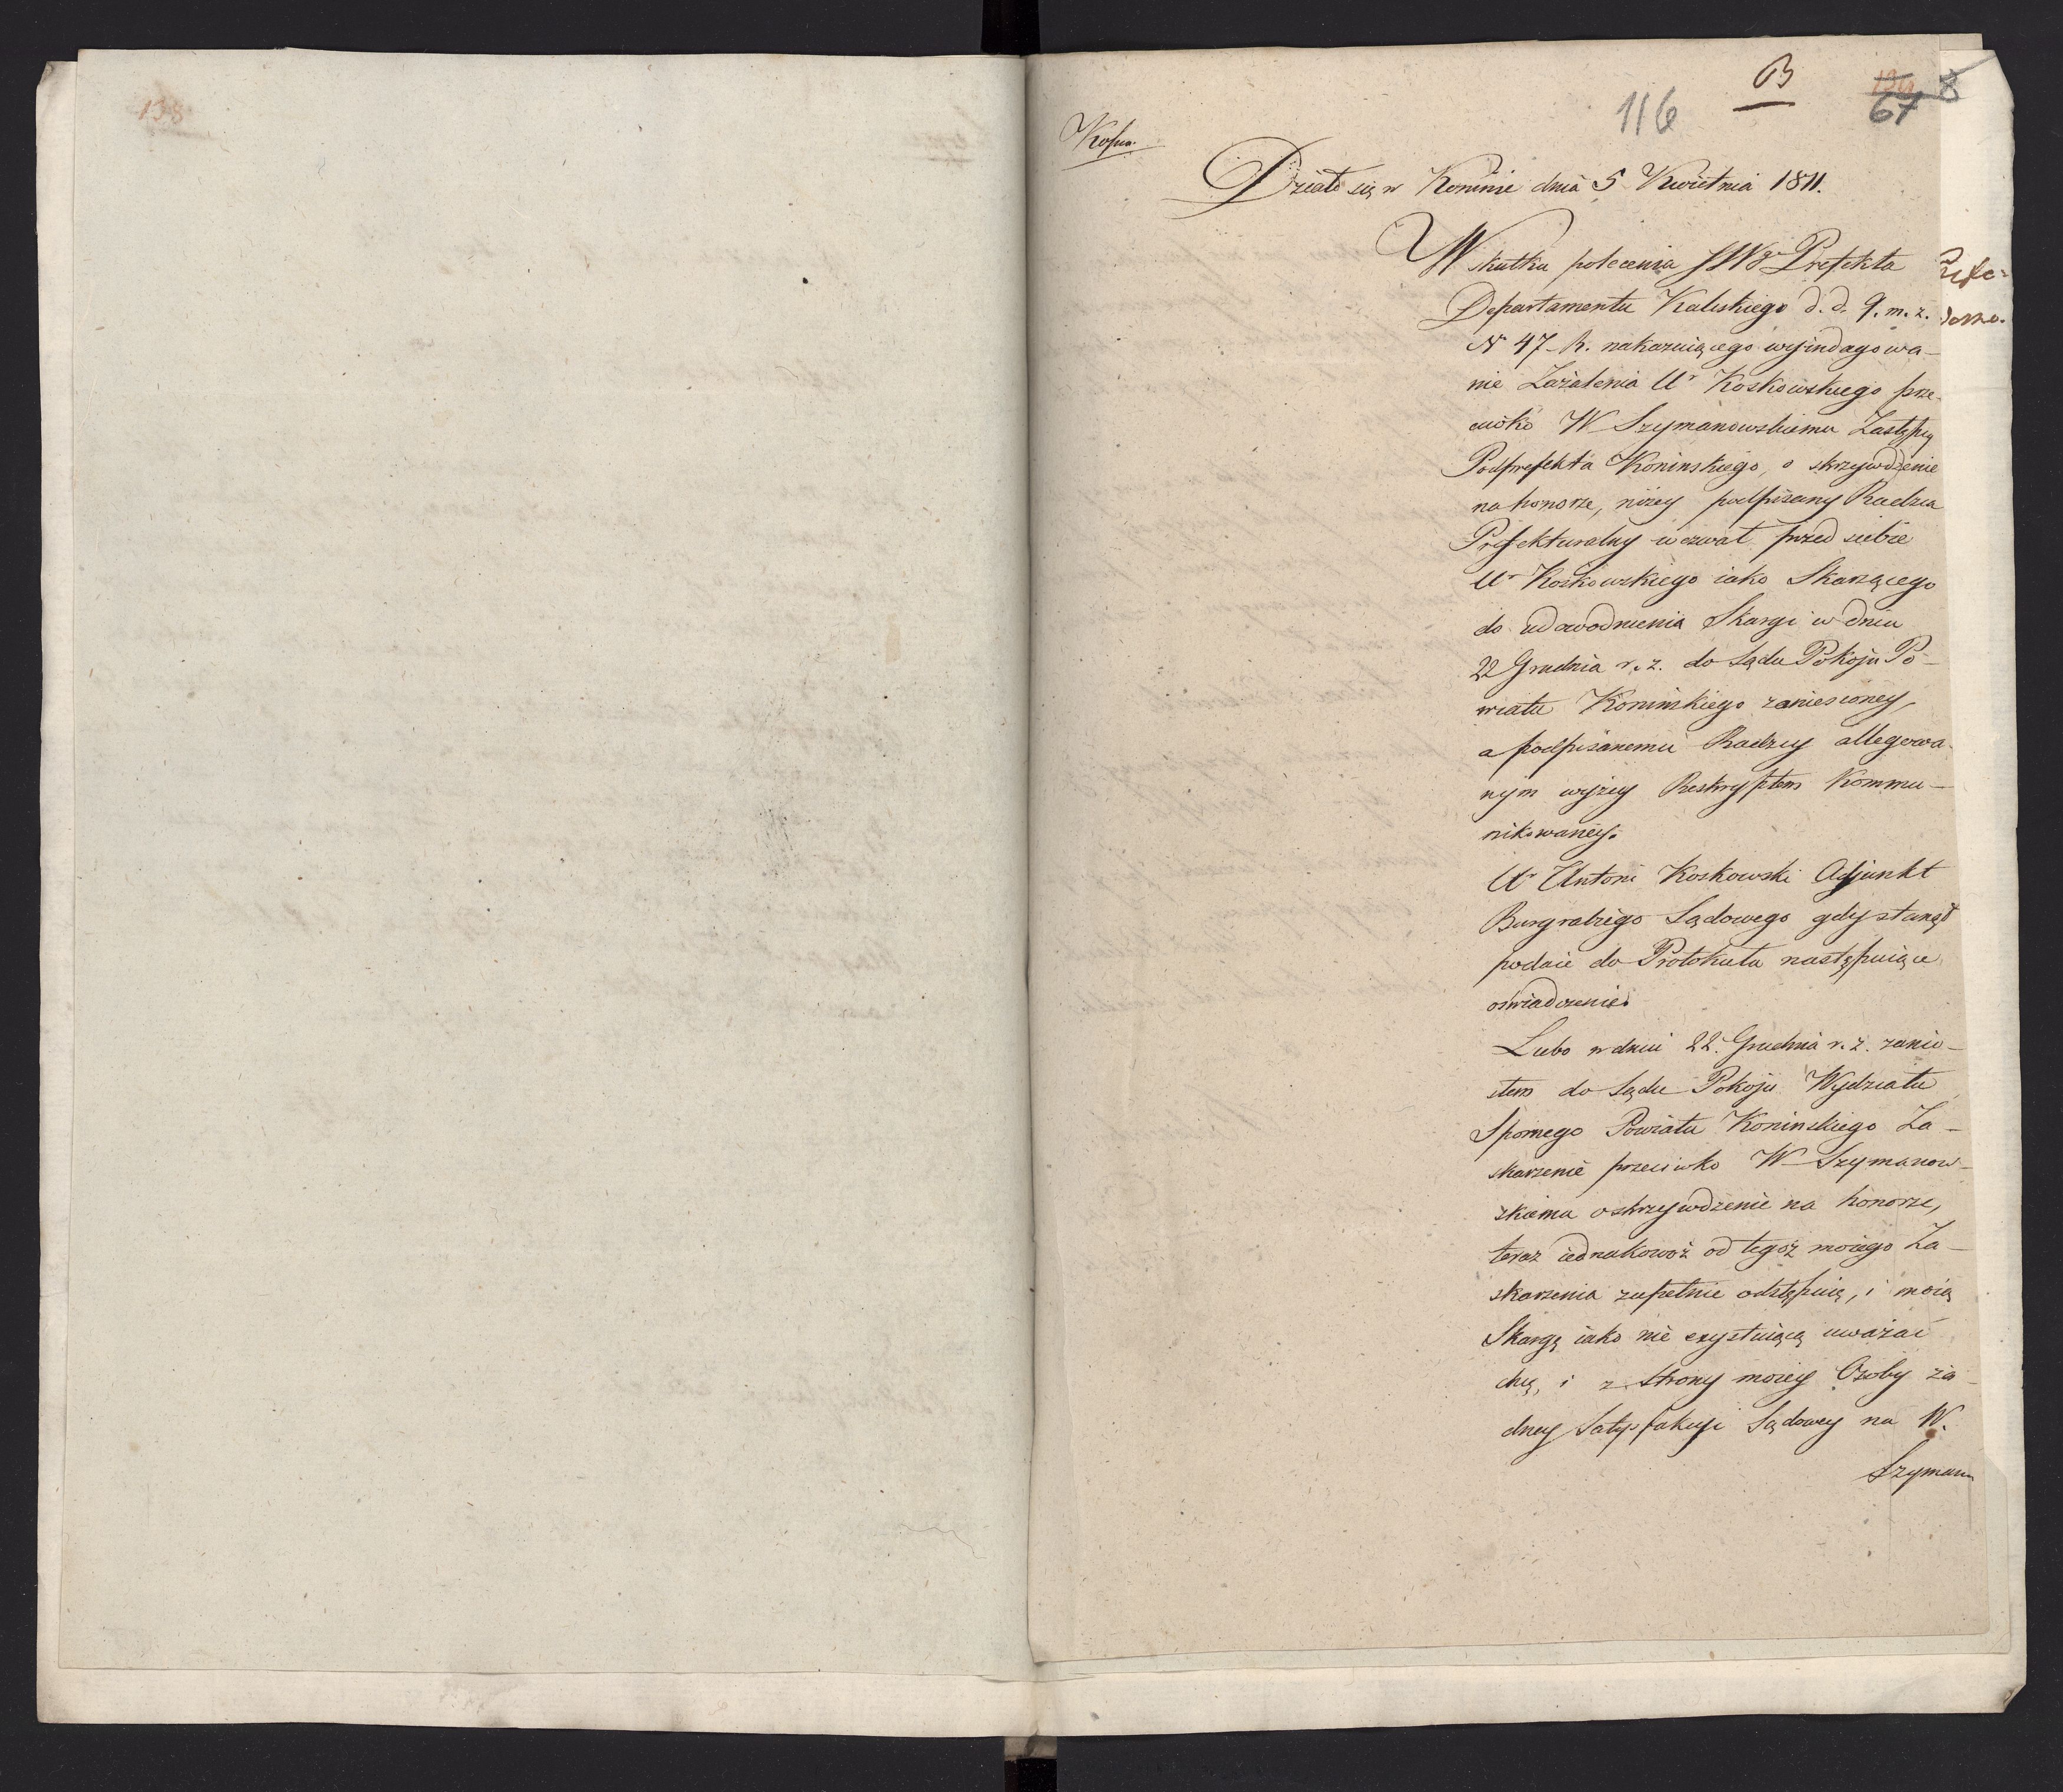 138
B
116
136
67
8
Kopia.
Działo się w Koninie dnia 5 Kwietnia 1811.
W skutku polecenia JWgo Prefekta
Departamentu Kaliskiego d. d. 9. m. z.
N 47 - R. nakazuiącego wyindagowa-
nie Zażalenia Ur Koskowskiego prze-
ciwko W Szymanowskiemu Zastępcy
Podprefekta Koninskiego, o skrzywdzenie
na honorze, niżey podpisany Radzca
Prefekturalny wezwał przed siebie
Ur Koskowskiego iako Skarzącego
do udowodnienia Skargi w dniu
22 Grudnia r. z. do Sądu Pokoju Po-
wiatu Koninskiego zaniesioney,
a podpisanemu Radzcy allegowa-
nym wyżey Reskryptem Kommu-
nikowaney.
Ur Antoni Koskowski Adjunkt
Burgrabiego Sądowego gdy stanął
podaie do Protokułu następuiące
oswiadczenie.
Lubo w dniu 22. Grudnia r. z. zanio-
słem do Sądu Pokoju Wydziału
Spornego Powiatu Koninskiego Za-
skarzenie przeciwko W Szymanow-
skiemu o skrzywdzenie na honorze,
teraz iednakowoż od tegoż moiego Za-
skarzenia zupełnie odstępuię, i moią
Skargę iako nie exystuiącą uważać
chcę, i z strony moiey Osoby ża-
dney Satysfakcyi Sądowey na W.
Szyman